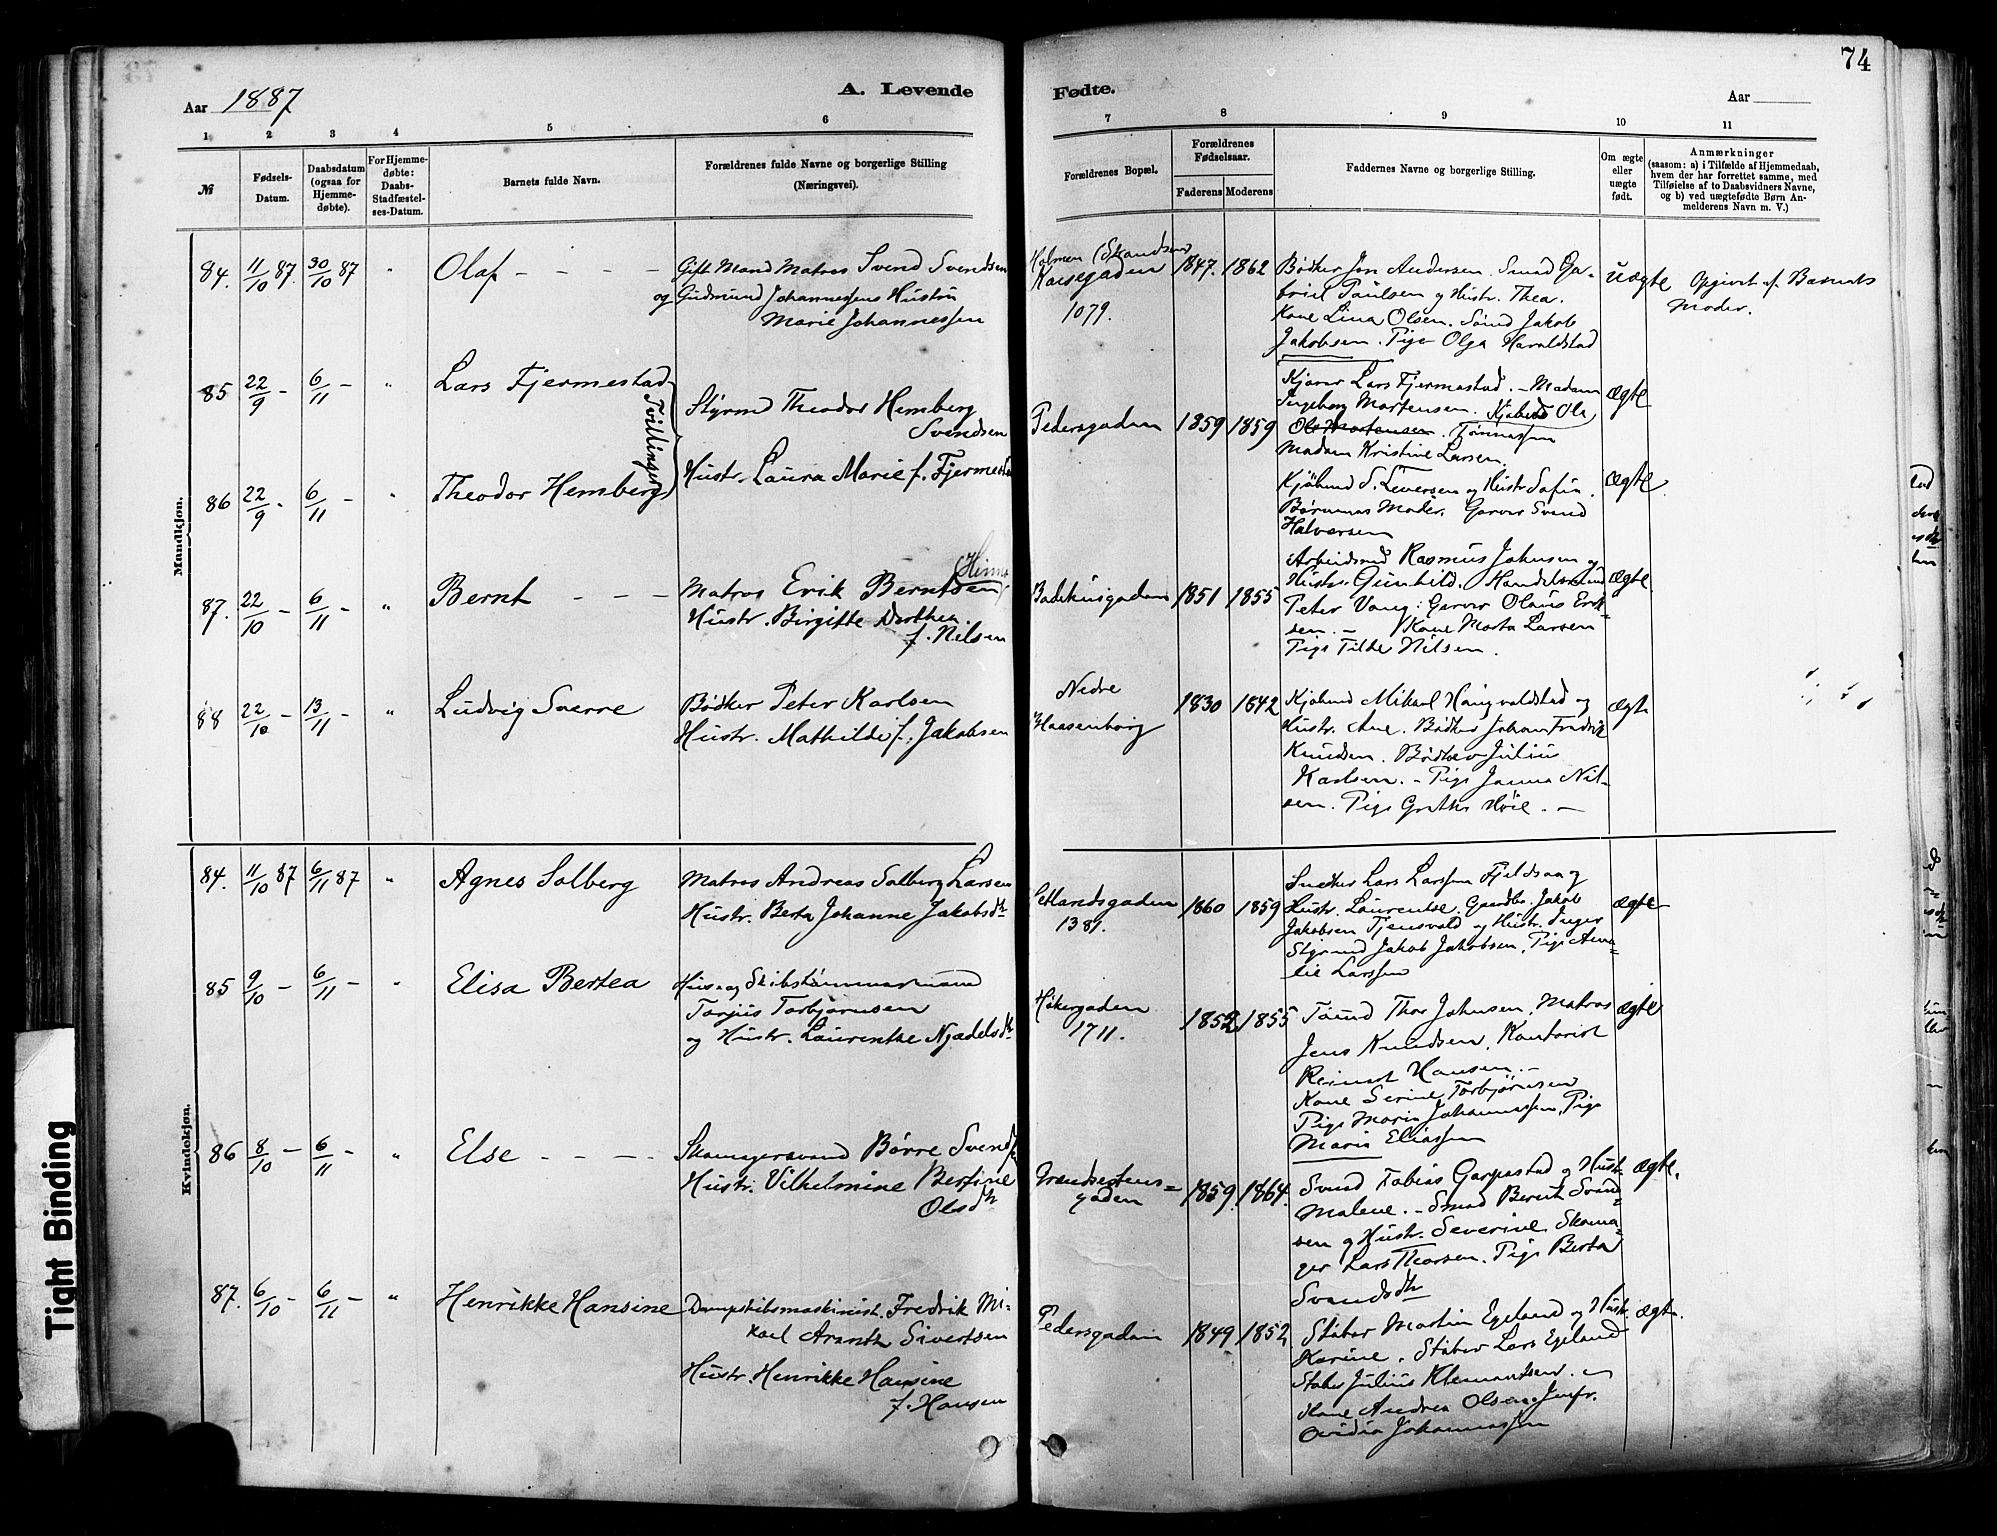 74
Aar 1887
A. Levende
Fødte.
Aar
1 2 3 4 5 6 7 8 9 10 11
№
Fødsels-
Datum.
Daabsdatum
(ogsaa for
Hjemme-
døbte).
For Hjemme-
døbte:
Daabs-
Stadfæstel-
ses-Datum.
Barnets fulde Navn.
Forældrenes fulde Navne og borgerlige Stilling
(Næringsvei).
Forældrenes Bopæl.
Forældrenes
Fødselsaar.
Faderens Moderens
Faddernes Navne og borgerlige Stilling.
Om ægte
eller
uægte
født.
Anmærkninger
(saasom: a) i Tilfælde af Hjemmedaab,
hvem der har forrettet samme, med
Tilføielse af to Daabsvidners Navne,
og b) ved uægtefødte Børn An-
melderens Navn m. V.)
Mandkjøn.
84. 11/10 87. 30/10 87 " Olaf - - - -
Gift Mand Matros Svend Svendsen
og Gudmund Johannessens Hustru
Marie Johannessen
Holmen
Korsegaden
1079.
1847. 1862
Bødker Jon Andersen. Smed Ga-
briel Paulsen og Hustr. Thea.
Kone Lina Olsen. Jakob
Jakobsen. Pige Olga Haraldstad
uægte
Opgivet af Barnets
Moder.
85 22/9 - 6/11 - " Lars Fjermestad
Tvillinger
Styrmd Theodor Hemberg
Svendsen
Pedersgaden 1859 1859
Lars Fjermestad. - Madam
Ingeborg Martensen. Ole
Ole Mortensen. Tønnessen
Madam Kristine Larsen.
ægte
86 22/9 - 6/11 - " Theodor Hemberg
Hustr. Laura Marie f. Fjermestad
Kjøbmd S. Iversen og Hustr Sofie.
Børnenes Moder. Garver Svend
Halvorsen
ægte
87. 22/10 - 6/11 - " Bernt - - -
Matros Erik Berntsen
Hustr. Birgitte Dorthea.
f. Nilsen
Badehusgaden 1851 1855
Arbeidsmd Rasmus Johnsen og
Hustr. Gunhild. Handelsmd
Peter Vaug. Garver Olaus Erik-
sen. - Kone Marta Larsen
Pige Tilde Nilsen.
ægte
88 22/10 - 13/11 - " Ludvig Sverre
Bødker Peter Karlsen
Hustr. Mathilde f. Jakobsen
Nedre
Blaasenborg
1830 1842
Kjøbmd Mikael Haugvaldstad og
Hustr. Ane. Bødker Johan Fredrik
Knudsen. Bødker Julius
Karlsen. - Pige Janna Nil-
sen. Pige Grethe Høie. -
ægte
Kvindekjøn.
84. 11/10 87 6/11 87 " Agnes Solberg
Matros Andreas Solberg Larsen
Hustr. Berta Johanne Jakobsdtr
Jetlandsgaden
1381.
1860 1859
Snedker Lars Larsen Fjeldsaa og
Hustr. Laurentse. Gaardbr. Jakob
Jakobsen Tjensvold og Hustr. Inger
Styrmd Jakob Jakobsen. Pige Ama-
lie Larssen
ægte
85 9/10 - 6/11 - " Elisa Bertea
Hus og Skibstømmermand
Torjus Torbjørnsen
og Hustr. Laurentse Njædelsdtr
Høkergaden
1711.
1852 1855
Tømd Thor Johnsen, Matros
Jens Knudsen, Kontorist
Reinert Hansen. -
Kone Serine Torbjørnsen
Pige Marie Johannessen, Pige
Marie Eliassen
ægte
86 8/10 - 6/11 - " Else - - - -
Skomagersvend Børre Svendsen
Hustr. Vilhelmine Bertine
Olsdtr
Brændestens-
gaden
1859. 1864.
Svend Tobias Garpestad og Hustr.
Malene. - Smed Berent Svend-
sen og Hustr. Severine. Skoma-
ger Lars Thorsen. Pige Berta
Svendsdtr
ægte.
87. 6/10 - 6/11 - " Henrikke Hansine
Dampskibsmaskinist. Fredrik Mi-
kael Arentz Sivertsen
Hustr. Henrikke Hansine
f. Hansen
Pedersgaden 1849 1852
Støber Martin Egeland og Hustr.
Karine. Støber Lars Egeland
Støber Julius Klemendsen.
Kone Andrea Olsen. Jmfr.
Ovidia Johannessen
ægte.
Tight Binding